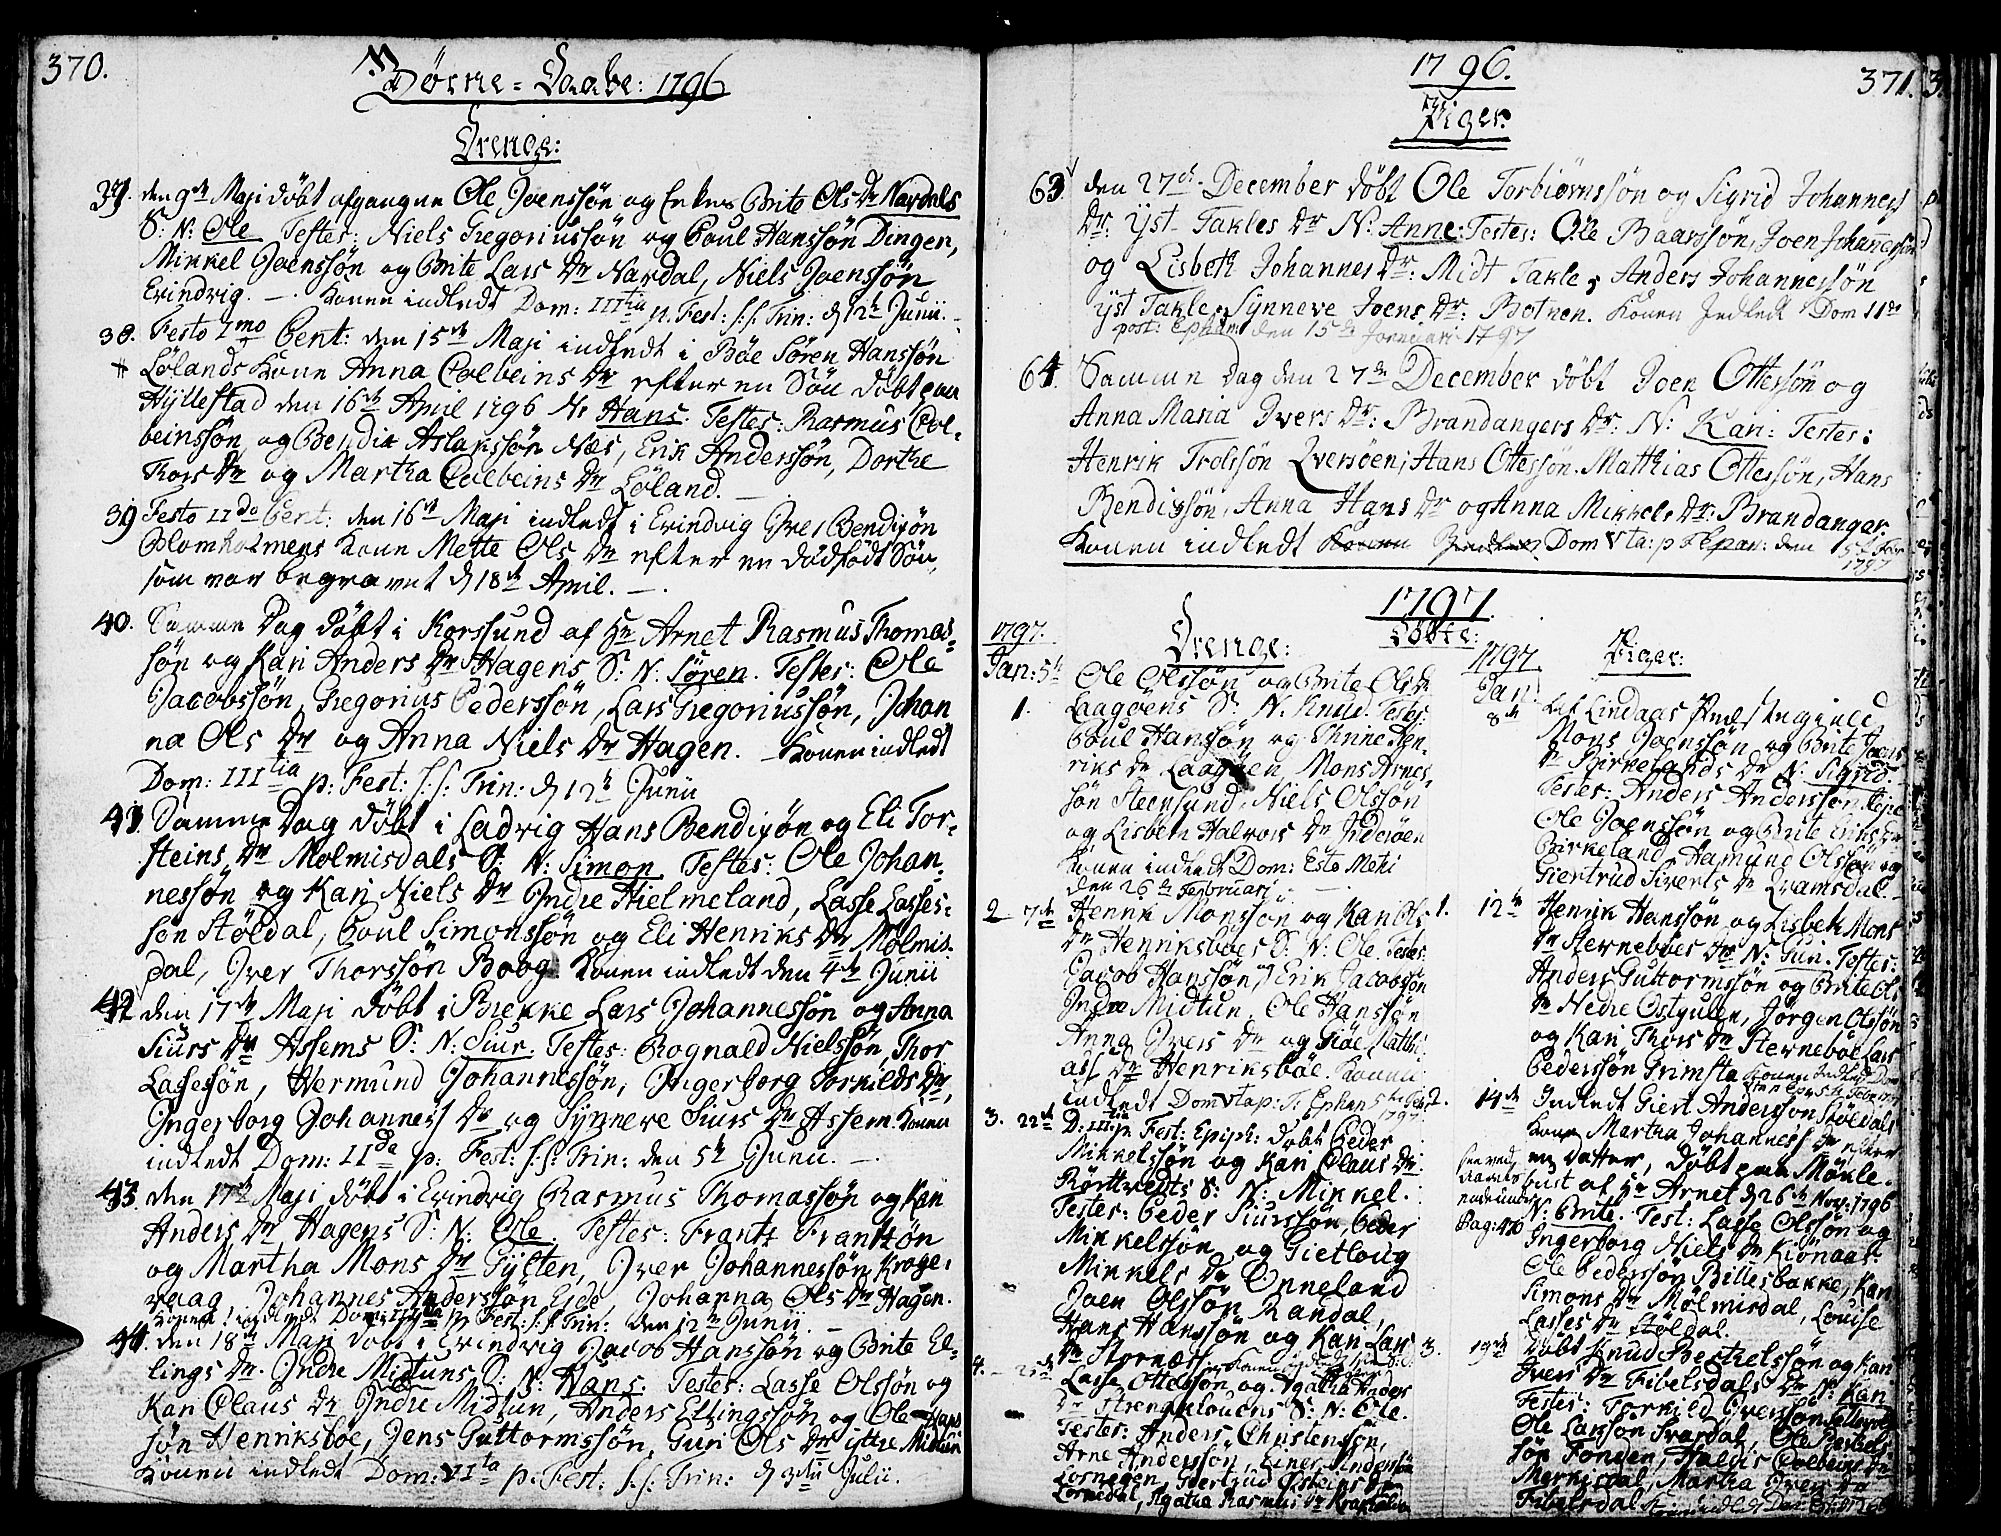 370.
Børne-Daabe: 1796
Drenge:
37. den 9de Maji døbt afgangne Ole Joenssøn og Enken Brite Ols Dr Nardals
S: N: Ole Testes: Niels Gregoriussøn og Poul Hanssøn Dingen,
Mikkel Joenssøn og Brite Lars Dr Nardal, Niels Joenssøn
Evindvig. Konen indledt Dom: IIItia p. Fest: S:S: Trin: d 12te Junii.
38. Festo Imo Pent: den 15de Maji indledt i Bøe Søren Hanssøn
Lølands Kone Anna Colbeins Dr efter en Søn døbt paa
Hyllestad den 16de April 1796 N: Hans. Testes: Rasmus Col-
beinssøn og Bendix Aslakssøn Næs, Erik Anderssøn, Dorthe
Thors Dr og Martha Colbeins Dr Løland.
39 Festo IIdo Pent: den 16de Maji indledt i Evindvig Iver Bendixøn
Blomholmens Kone Mette Ols Dr efter en dødfødt Søn,
som var begravet d 18de April.
40. Samme Dag døbt i Korssund af Hr Arnet Rasmus Thomas-
søn og Kari Anders Dr Hagens S: N: Søren. Testes: Ole
Jacobssøn, Gregorius Pederssøn, Lars Gregoriussøn, Johan
na Ols Dr og Anna Niels Dr Hagen. Konen indledt
Dom: IIItia p: Fest: S:S: Trin: d 12te Junii
41. Samme Dag døbt i Ladvig Hans Bendixøn og Eli Tor-
steins Dr Molmisdals S: N: Simon Testes: Ole Johan-
nessøn og Kari Niels Dr Indre Hielmeland, Lasse Lasses-
søn Støldal, Poul Simonssøn og Eli Henriks Dr Mølmis-
dal, Iver Thorssøn Boog Konen indledt den 4de Junii
42 den 17de Maji døbt i Brekke Lars Johannessøn og Anna
Siurs Dr Assems S: N: Siur. Testes: Rognald Nielssøn, Thor
Lassessøn, Hermund Johannessøn, Ingerborg Torkilds Dr,
Ingerborg Johannes Dr og Synneve Siurs Dr Assem. Konen
indledt Dom: IIda p: Fest: S:S: Trin: den 5te Junii.
43. den 17de Maji døbt i Evindvig Rasmus Thomassøn og Kari
Anders Dr Hagens S: N: Ole. Testes: Frantz Frantzøn
og Martha Mons Dr Gylten, Iver Johannessøn Kroge-
vaag, Johannes Anderssøn Eide, Johanna Ols Dr Hagen.
Konen indledt Dom: IIItia p: Fest: S:S: Trin: den 12te Junii.
44. den 18de Maji døbt i Evindvig Jacob Hanssøn og Brite El-
lings Dr Indre Midtuns S: N: Hans. Testes: Lasse Olssøn og
Kari Claus Dr Indre Midtun, Anders Ellingssøn og Ole Hans
søn Henriksbøe, Jens Guttormssøn, Guri Ols Dr ittre Midtun
Konen indledt Dom: VIta p: Fest: S:S: Trin: d 3die Julii.
1796.
371.
Piger.
63 den 27de December døbt Ole Torbiørnssøn og Sigrid Johannes
Dr: yst Takles Dr N: Anne: Testes: Ole Baarssøn, Joen Johannessøn
og Lisbeth Johannes Dr: Midt Takle, Anders Johannessøn
yst Takle, Synneve Joens Dr: Botnen. Konen Indledt Dom IIda
post: Ephan: den 15de Januari 1797
64. Samme Dag den 27de December døbt Joen Ottessøn og
Anna Maria Ivers Dr: Brandangers Dr: N: Kari: Testes:
Henrik Trolssøn Qversøen, Hans Ottessøn. Matthias Ottessøn, Hans
Bendixsøn, Anna Hans Dr og Anna Mikkels Dr: Brandanger.
Konen indledt Dom Vta: p Ephan: den 5te Febr
1797
1797.
Døbte:
1797.
Drenge:
Jan: 5te Ole Olssøn og Brite Ols Dr
1. Laagøens S: N: Knud. Testes:
Poul Hanssøn og Thrine Hen-
riks Dr Laagøen, Mons Arnes-
søn Steensund, Niels Olssøn
og Lisbeth Halvors Dr Inderøen
Konen indledt Dom: Esto Mehi
den 26de Februarj
2 7de Henrik Monssøn og Kari Ols
Dr Henriksbøes S: N: Ole. Testes:
Jacob Hanssøn, Erik Jacobssøn
Indre Midtun, Ole Hanssøn
Anna Ivers Dr og Giøe Matthi
as Dr Henriksbøe. Konen
indledt Dom Vta p: F: Ephan 5te Feb
1797
3. 22de D: IIItia p Fest: Epiph: døbt Peder
Mikkelssøn og Kari Claus Dr:
Rørtvedts S: N: Mikkel.
Testes: Peder Siurssøn, Peder
Mikkelssøn og Gietloug
Mikkels Dr Onneland
Joen Olssøn Randal,
Hans Hanssøn og Kari Lars
Dr Stornæs.
4. Lasse Ottessøn og Agatha Anders
Dr Strengelouens S: N: Ole.
Testes: Anders Christenssøn,
Arne Anderssøn, Einer Anderssøn
Tornegen, Giertrud Østeins Dr
Tornedal, Agatha Rasmus Dr
1797
Piger:
Jan
8de Lindaas Præstegield
Mons Joenssøn og Brite Joens
Dr Birkelands Dr N: Sigrid.
Testes: Anders Anderssøn
Ole Joenssøn og Brite Eriks Dr
Birkeland, Hamund Olssøn og
Giertrud Siverts Dr Qvamsdal.
1. 12te Henrik Hanssøn og Lisbeth Mons
Dr Sternebøes Dr N: Guri. Testes:
Anders Guttormssøn og Brite Ols
Dr Nedre Østgulen, Jørgen Olssøn
og Kari Thors Dr Sternebøe Lars
Pederssøn Grimsta Konen Indledt Dom
den 5te Februari
2. 14de Indledt Giert Anderssøn Støldals
Kone Martha Johannes Dr efter
en Datter, døbt paa Møkle-
bust af Hr Arnet d 26de Nov: 1796
N: Brite. Test: Lasse Olssøn og
Ingerborg Niels Dr Kiønaas.
Ole Pederssøn Billesbakke, Kari
Simons Dr Mølmisdal, Louise
Lasses Dr Støldal.
Pag: 470
3. 19de Døbt Knud Berthelssøn og Kari
Ivers Dr Fibelsdals Dr N: Kari
Testes: Torkild Iverssøn
Ole Larssøn Svardal, Ole Berthels-
søn Fonden, Halvis Colbeins Dr
Merkisdal, Martha Ivers Dr
Fibelsdal